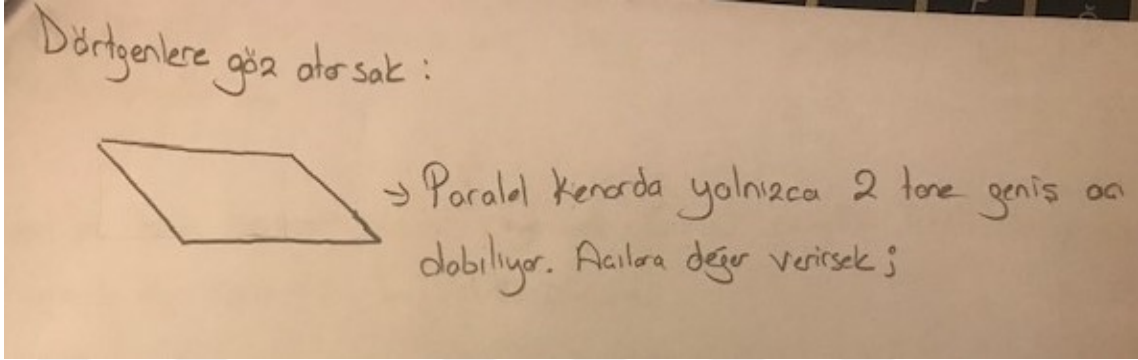 Dörtgenlere göz atarsak :
→ Paralel kenarda yalnızca 2 tane geniş açı
olabiliyor. Açılara değer verirsek ;